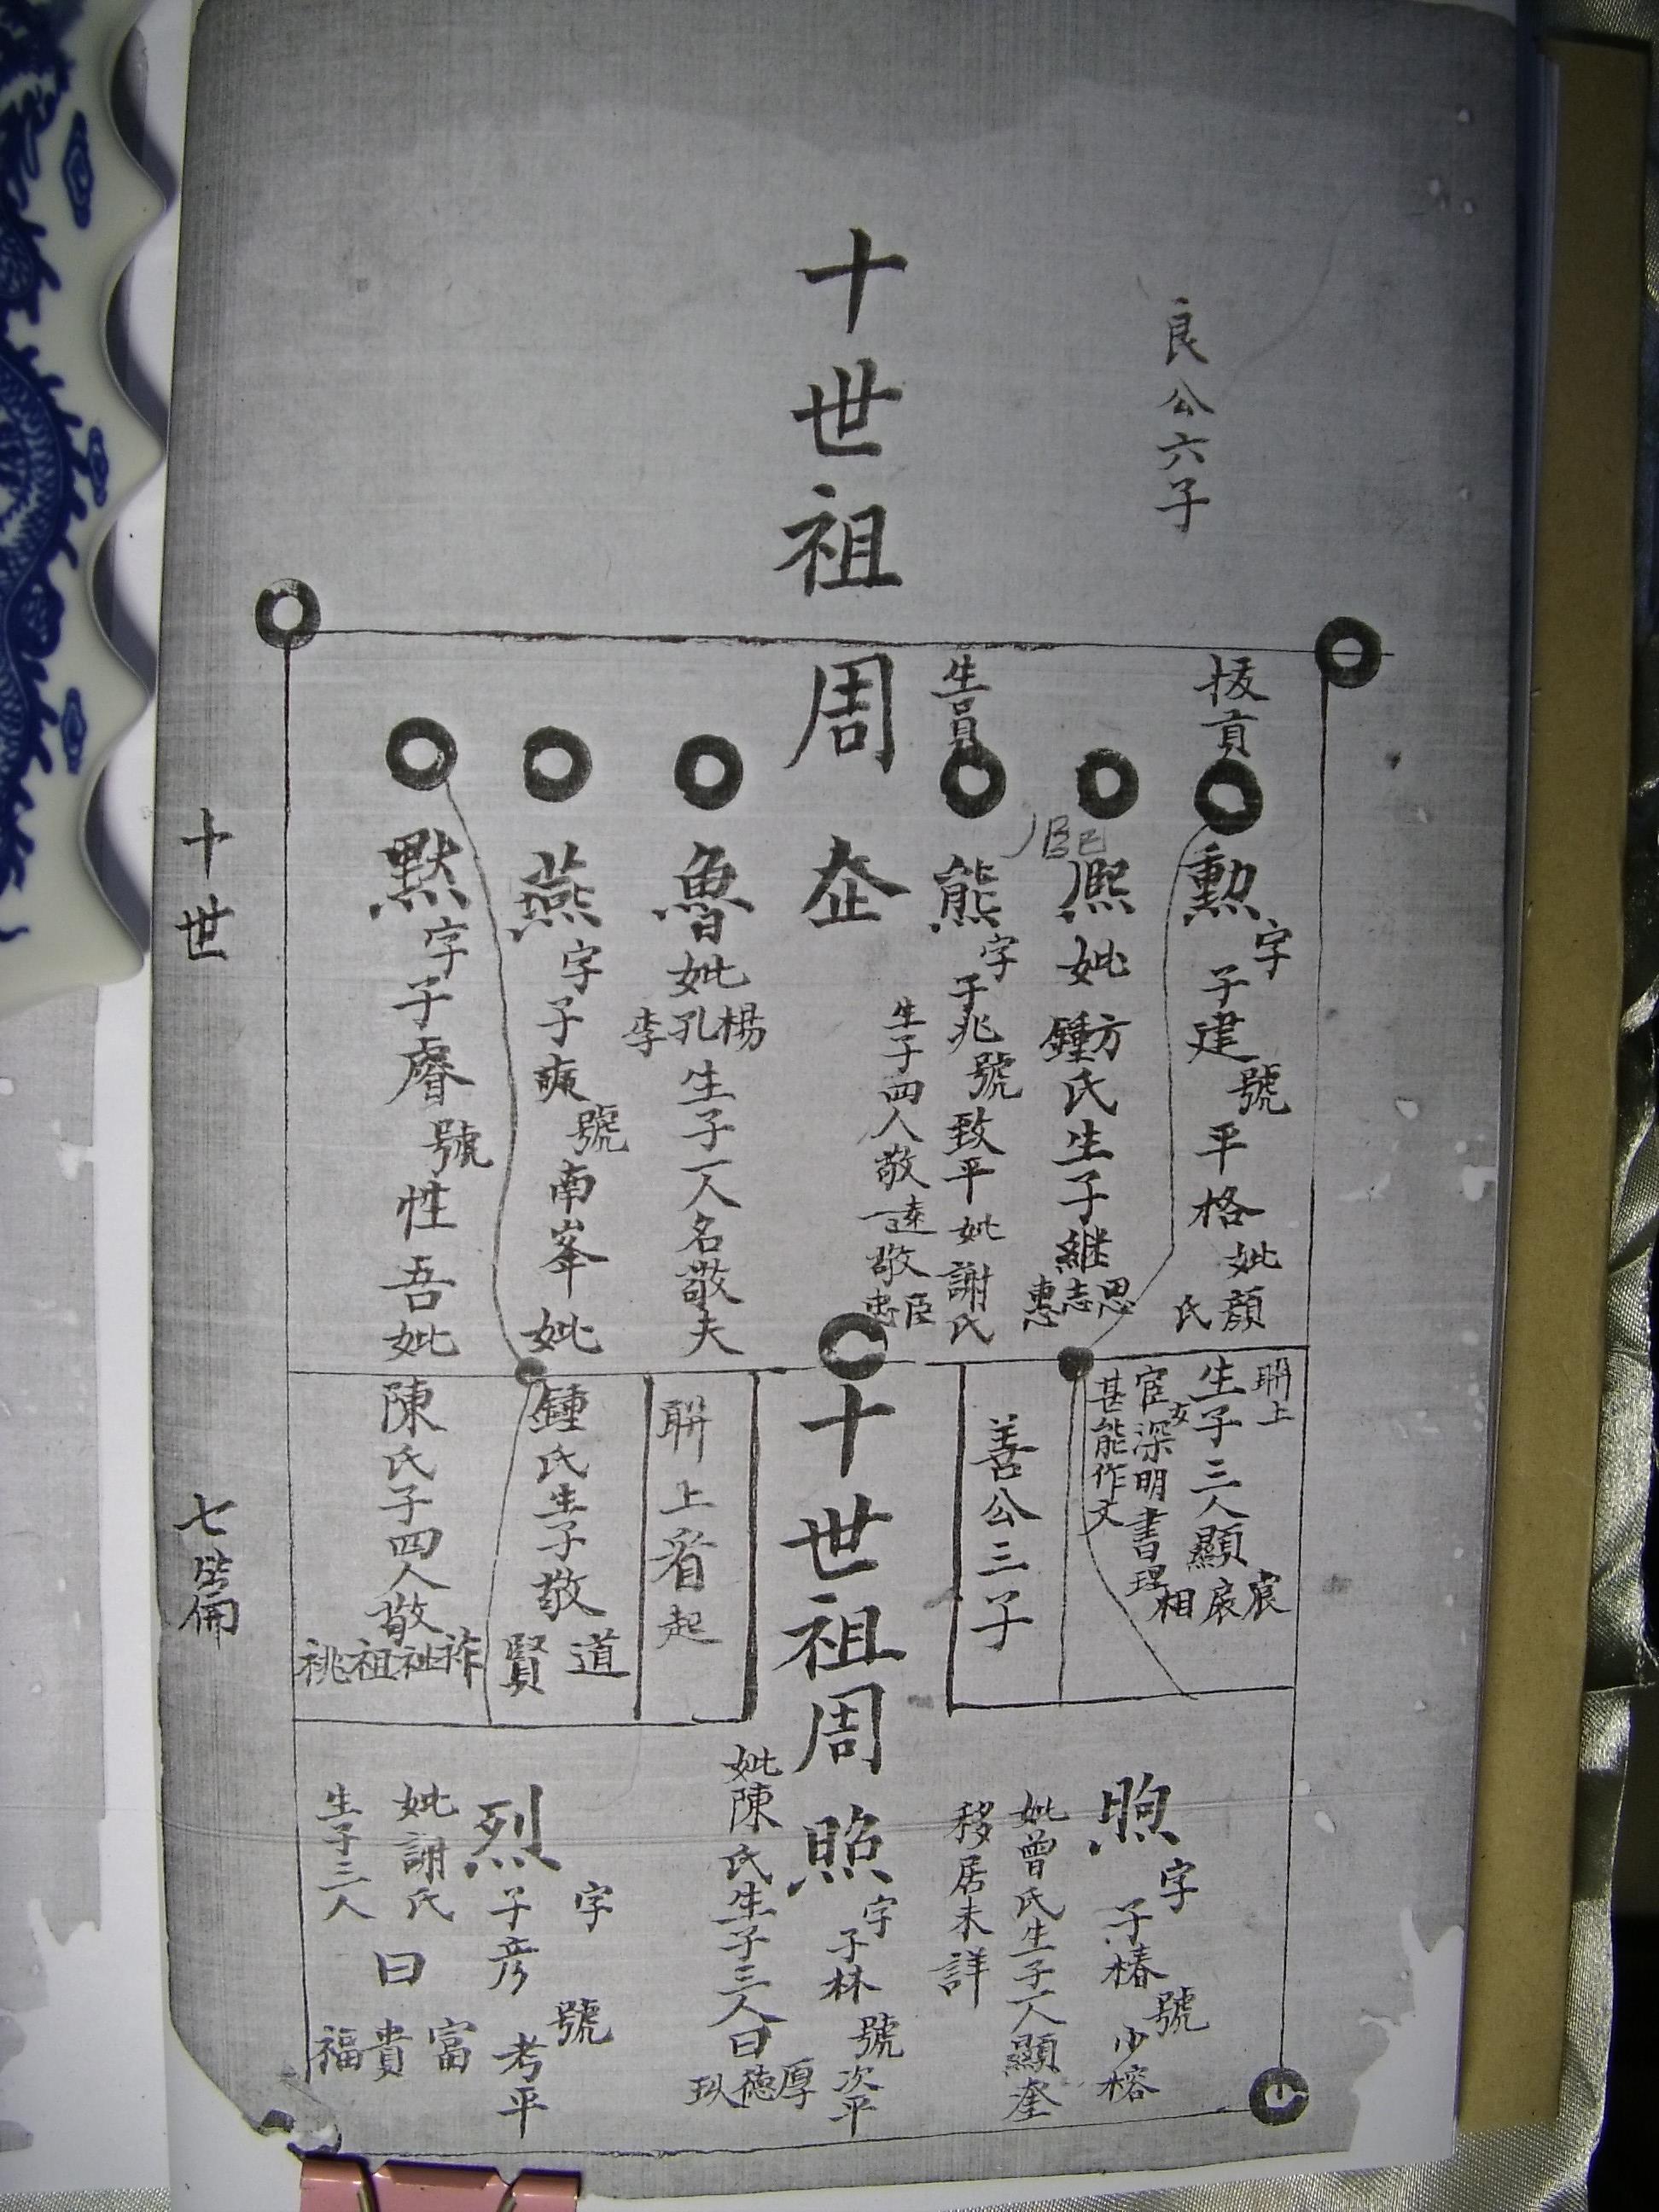 良公六子
十世祖
拔貢
勲字子建號平格妣顏氏
熈妣方鍾氏生子継思志惠
生員
熊字子兆號致平妣謝氏
生子四人敬遠敬臣忠
周
魯妣楊孔李生子一人名敬夫
燕字子爽號南峯妣
默字子睿號性吾妣
聠上
生子三人顯宸扆相
宦深明書理
甚能作文
善公三子
十世祖周
聠上看起
鍾氏生子敬道賢
陳氏子四人敬祚祉祖祧
煦字子椿號少榕
妣曾氏生子一人顯奎
移居未詳
照字子林號次平
妣陳氏生子三人曰厚德玖
烈字子彦號考平
妣謝氏
生子三人
曰富貴福
十世
七篇